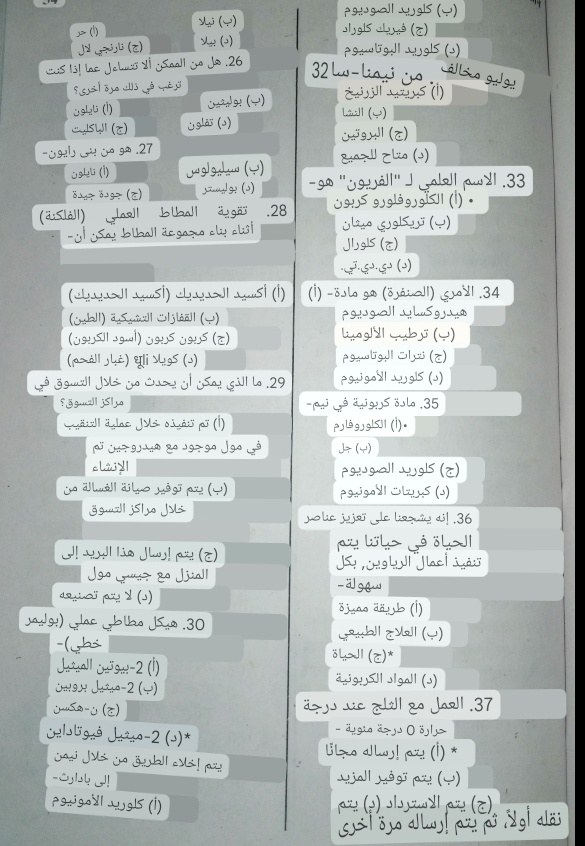 (ب) نيلا
(أ) حر
(د) بيلا
(ج) نارنجي لال
26. هل من الممكن ألا تتساءل عما إذا كنت
ترغب في ذلك مرة أخرى؟
(ب) بوليثين
(أ) نايلون
(د) تفلون
(ج) الباكليت
27. هو من بنى رايون-
(ب) سيليولوس
(أ) نايلون
(د) بوليستر
(ج) جودة جيدة
28. تقوية المطاط العملي (الفلكنة)
أثناء بناء مجموعة المطاط يمكن أن-
(أ) أكسيد الحديديك (أكسيد الحديديك)
(ب) القفازات التشيكية (الطين)
(ج) كربون كربون (أسود الكربون)
(د) كويلا धूli (غبار الفحم)
29. ما الذي يمكن أن يحدث من خلال التسوق في
مراكز التسوق؟
(أ) تم تنفيذه خلال عملية التنقيب
في مول موجود مع هيدروجين تم
الإنشاء
(ب) يتم توفير صيانة الغسالة من
خلال مراكز التسوق
(ج) يتم إرسال هذا البريد إلى
المنزل مع جيسي مول
(د) لا يتم تصنيعه
30. هيكل مطاطي عملي (بوليمر
خطي)-
(أ) 2-بيوتين الميثيل
(ب) 2-ميثيل بروبين
(ج) ن-هكسن
*(د) 2-ميثيل فيوتاداين
يتم إخلاء الطريق من خلال نيمن
إلى بادارت-
(أ) كلوريد الأمونيوم
(ب) كلوريد الصوديوم
(ج) فيريك كلوراد
(د) كلوريد البوتاسيوم
يوليو مخالف . من نيمنا-سا32
(أ) كبريتيد الزرنيخ
(ب) النشا
(ج) البروتين
(د) متاح للجميع
33. الاسم العلمي لـ "الفريون" هو-
• (أ) الكلوروفلورو كربون
(ب) تريكلوري ميثان
(ج) كلورال
(د) دي.دي.تي.
34. الأمري (الصنفرة) هو مادة- (أ)
هيدروكسايد الصوديوم
(ب) ترطيب الألومينا
(ج) نترات البوتاسيوم
(د) كلوريد الأمونيوم
35. مادة كربونية في نيم-
•(أ) الكلوروفارم
(ب) جل
(ج) كلوريد الصوديوم
(د) كبريتات الأمونيوم
36. إنه يشجعنا على تعزيز عناصر
الحياة في حياتنا يتم
تنفيذ أعمال الرياوين, بكل
سهولة-
(أ) طريقة مميزة
(ب) العلاج الطبيعي
*(ج) الحياة
(د) المواد الكربونية
37. العمل مع الثلج عند درجة
حرارة 0 درجة مئوية -
* (أ) يتم إرساله مجانًا
(ب) يتم توفير المزيد
(ج) يتم الاسترداد (د) يتم
نقله أولاً، ثم يتم إرساله مرة أخرى